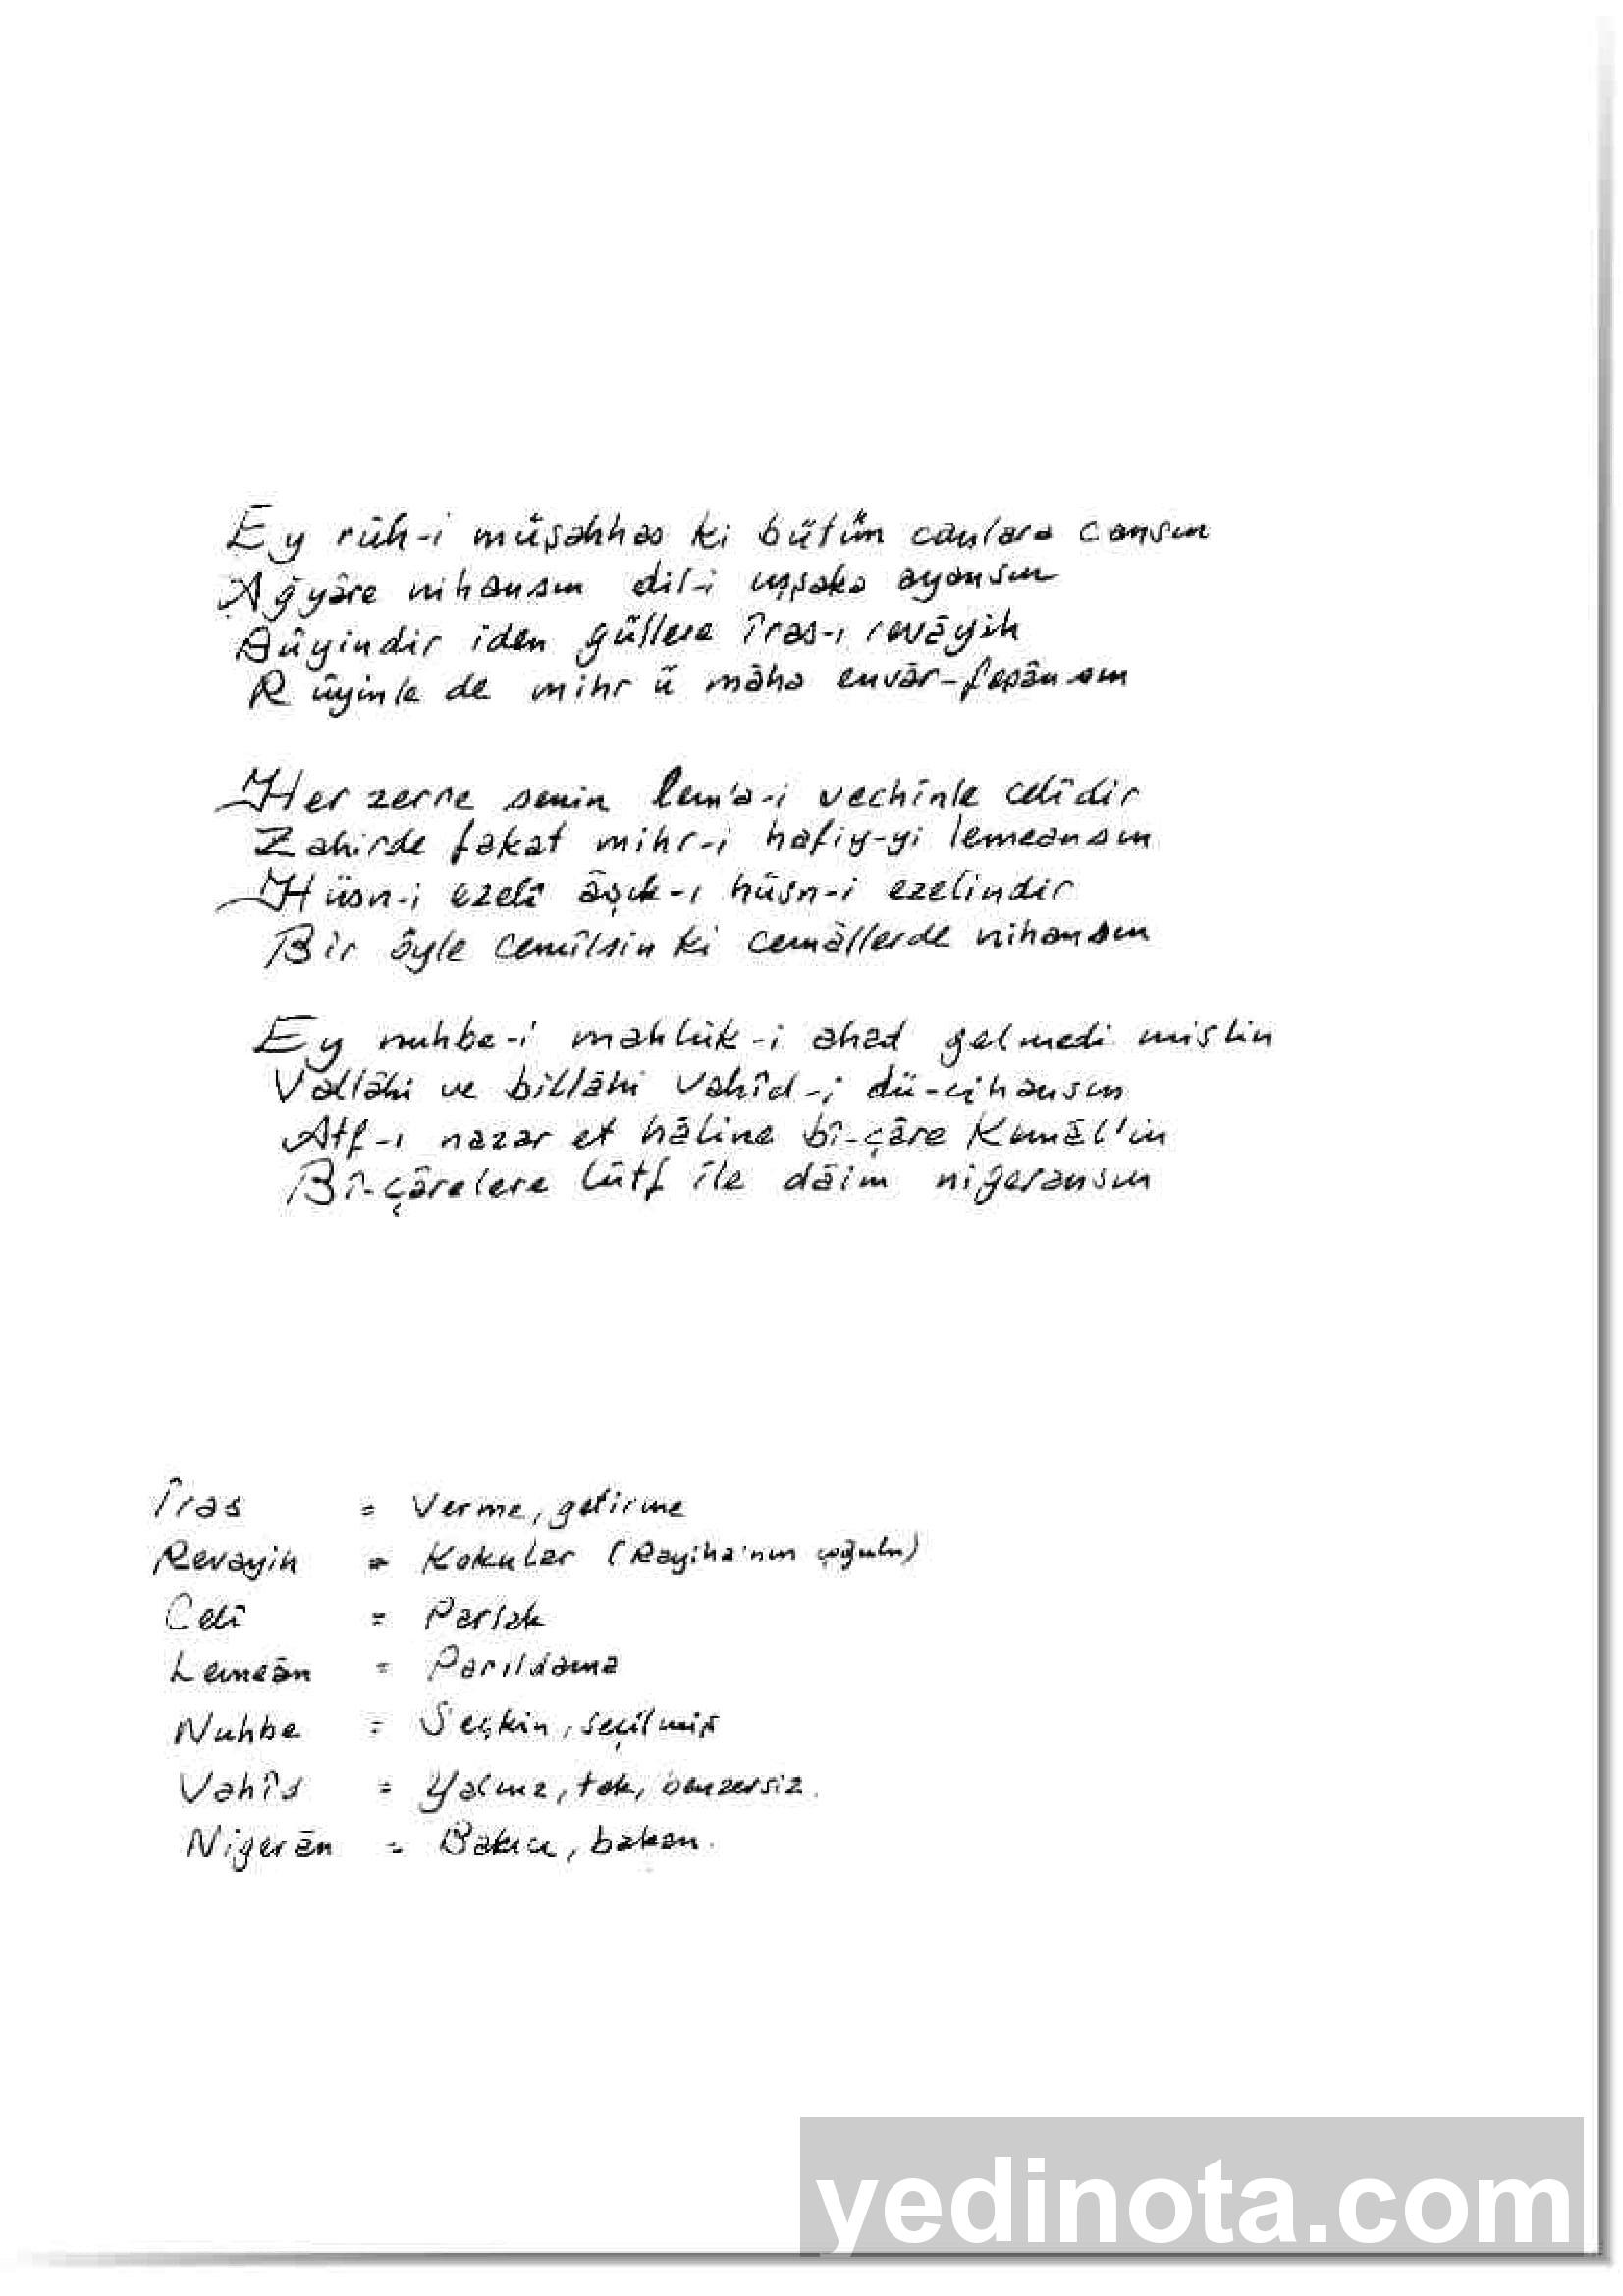 Ey rûh-i müşahhas ki bütün canlara cansın
Ağyâre nihansın dil-i uşşaka ayansın
Bûyindir iden güllere îras-ı revâyih
Rûyinle de mihr ü mâha envâr-feşânsın
Her zerre senin lem'a-i vechinle celîdir
Zahirde fakat mihr-i hafiy-yi lemeansın
Hüsn-i ezelî âşık-ı hüsn-i ezelindir
Bir öyle cemîlsin ki cemâllerde nihansın
Ey nuhbe-i mahlûk-i ahad gelmedi mislin
Vallâhi ve billâhi vahîd-i dü-cihansın
Atf-ı nazar et hâline bî-çâre Kemâl'in
Bî-çârelere lûtf ile dâim nigeransın
Îras = Verme, getirme
Revayih = Kokular (Rayiha'nın çoğulu)
Celî = Parlak
Lemeân = Parıldama
Nuhbe = Seçkin, seçilmiş
Vahîd = Yalnız, tek, benzersiz.
Nigerân = Bakıcı, bakan.
yedinota.com